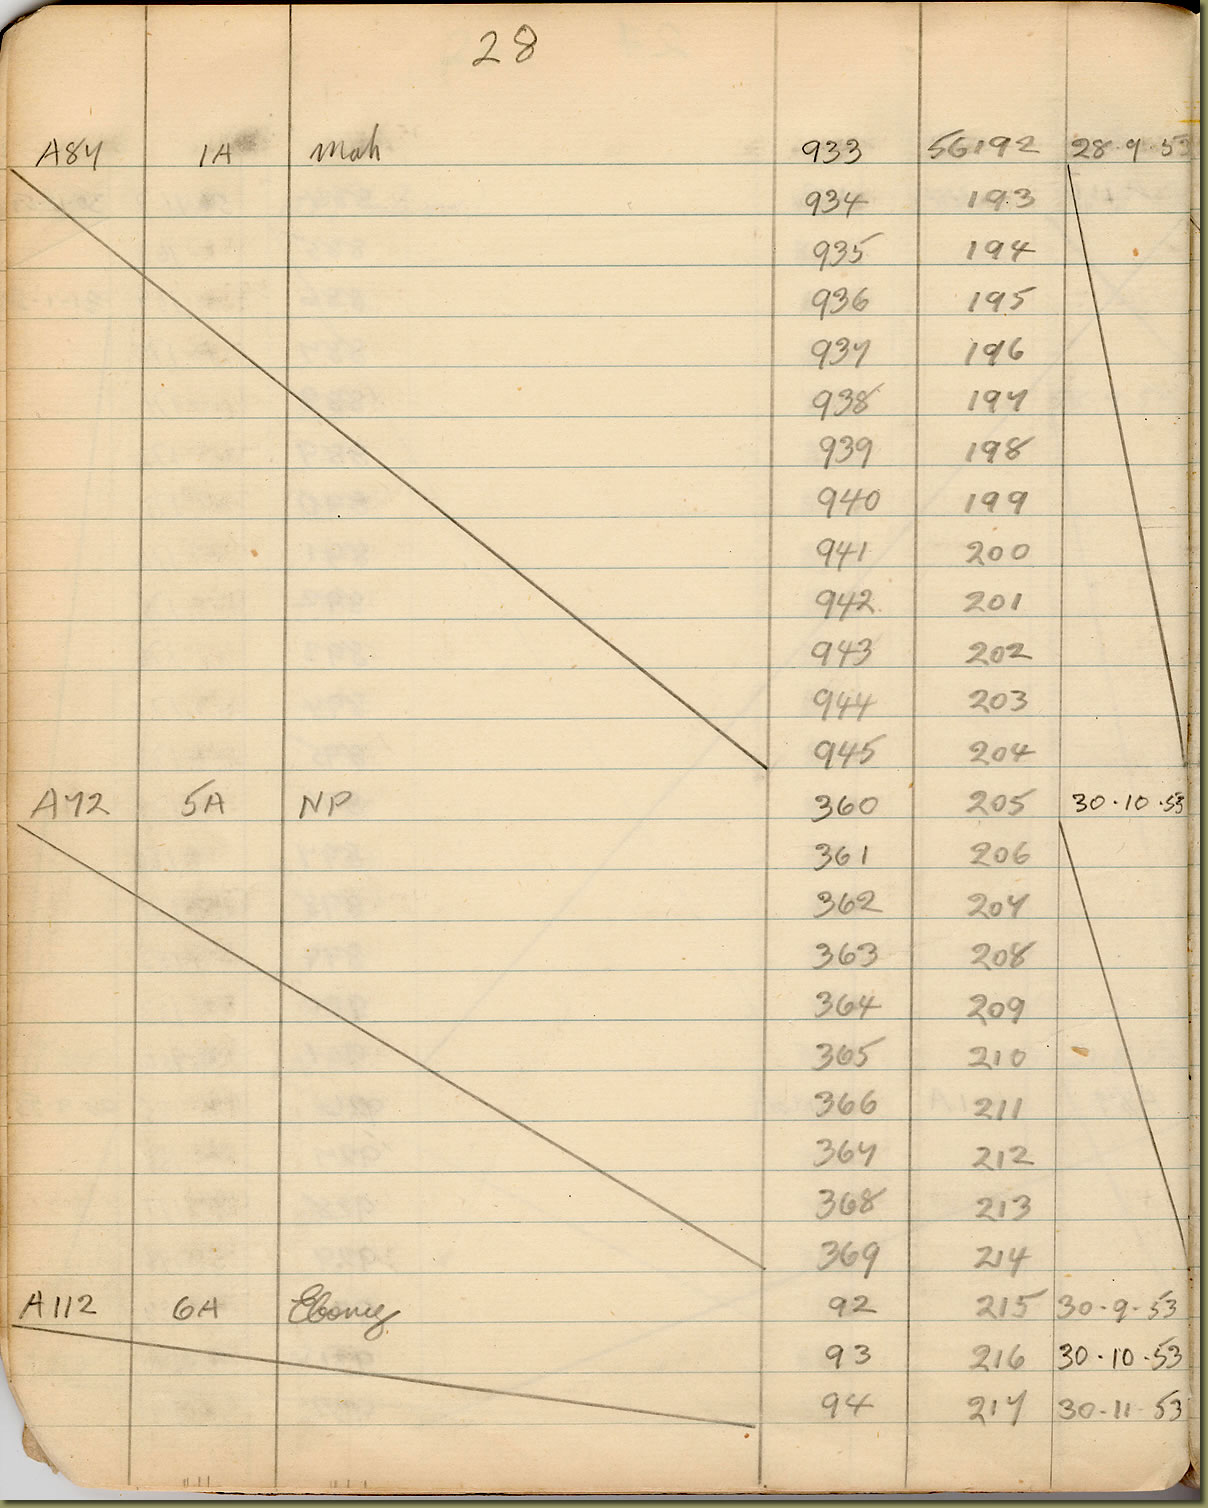 28
A87 1A Mah 933 56192 28·9·53
934 193
935 194
936 195
937 196
938 197
939 198
940 199
941 200
942 201
943 202
944 203
945 204
A72 5A NP 360 205 30·10·53
361 206
362 207
363 208
364 209
365 210
366 211
367 212
368 213
369 214
A112 6A Ebony 92 215 30-9-53
93 216 30·10·53
94 217 30-11-53